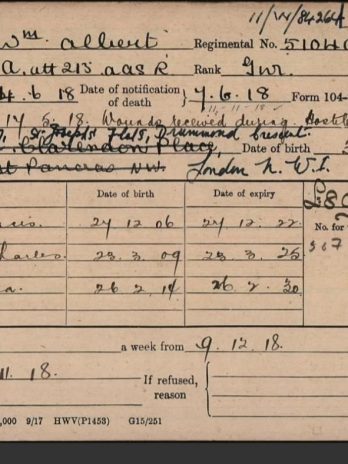 11/W/84264
Wm Albert Regimental No. 51040
A, att 215 a a S R Rank Gnr.
4. 6. 18 Date of notification of death 7. 6. 18 Form 104-
11-11-18
17 5. 18. Wounds received during Hostil
St Josephs Flats, Drummond Crescent
Clarendon Place,
St Pancras N.W. London N.W.1.
Date of birth Date of expiry
No. for
24 12 06 24. 12. 22
Charles. 23. 3. 09 23. 3. 25
a. 26 2. 14 26. 2. 30
a week from 9. 12. 18.
11. 18. If refused, reason
,000 9/17 HWV(P1453) G15/251